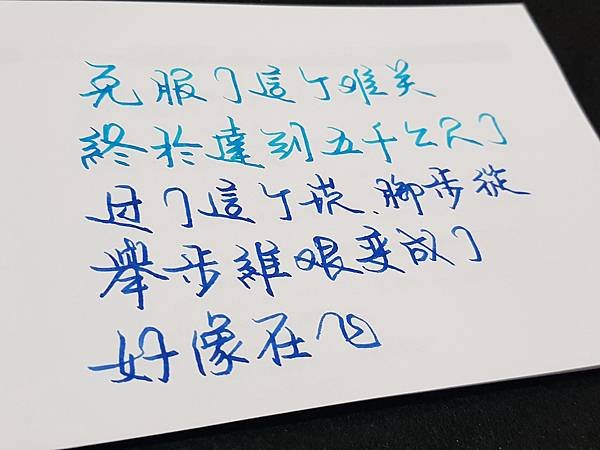 克服了這个难关
終於達到五千公尺了
过了這个崁、腳步從
舉步維艱变成了
好像在飞